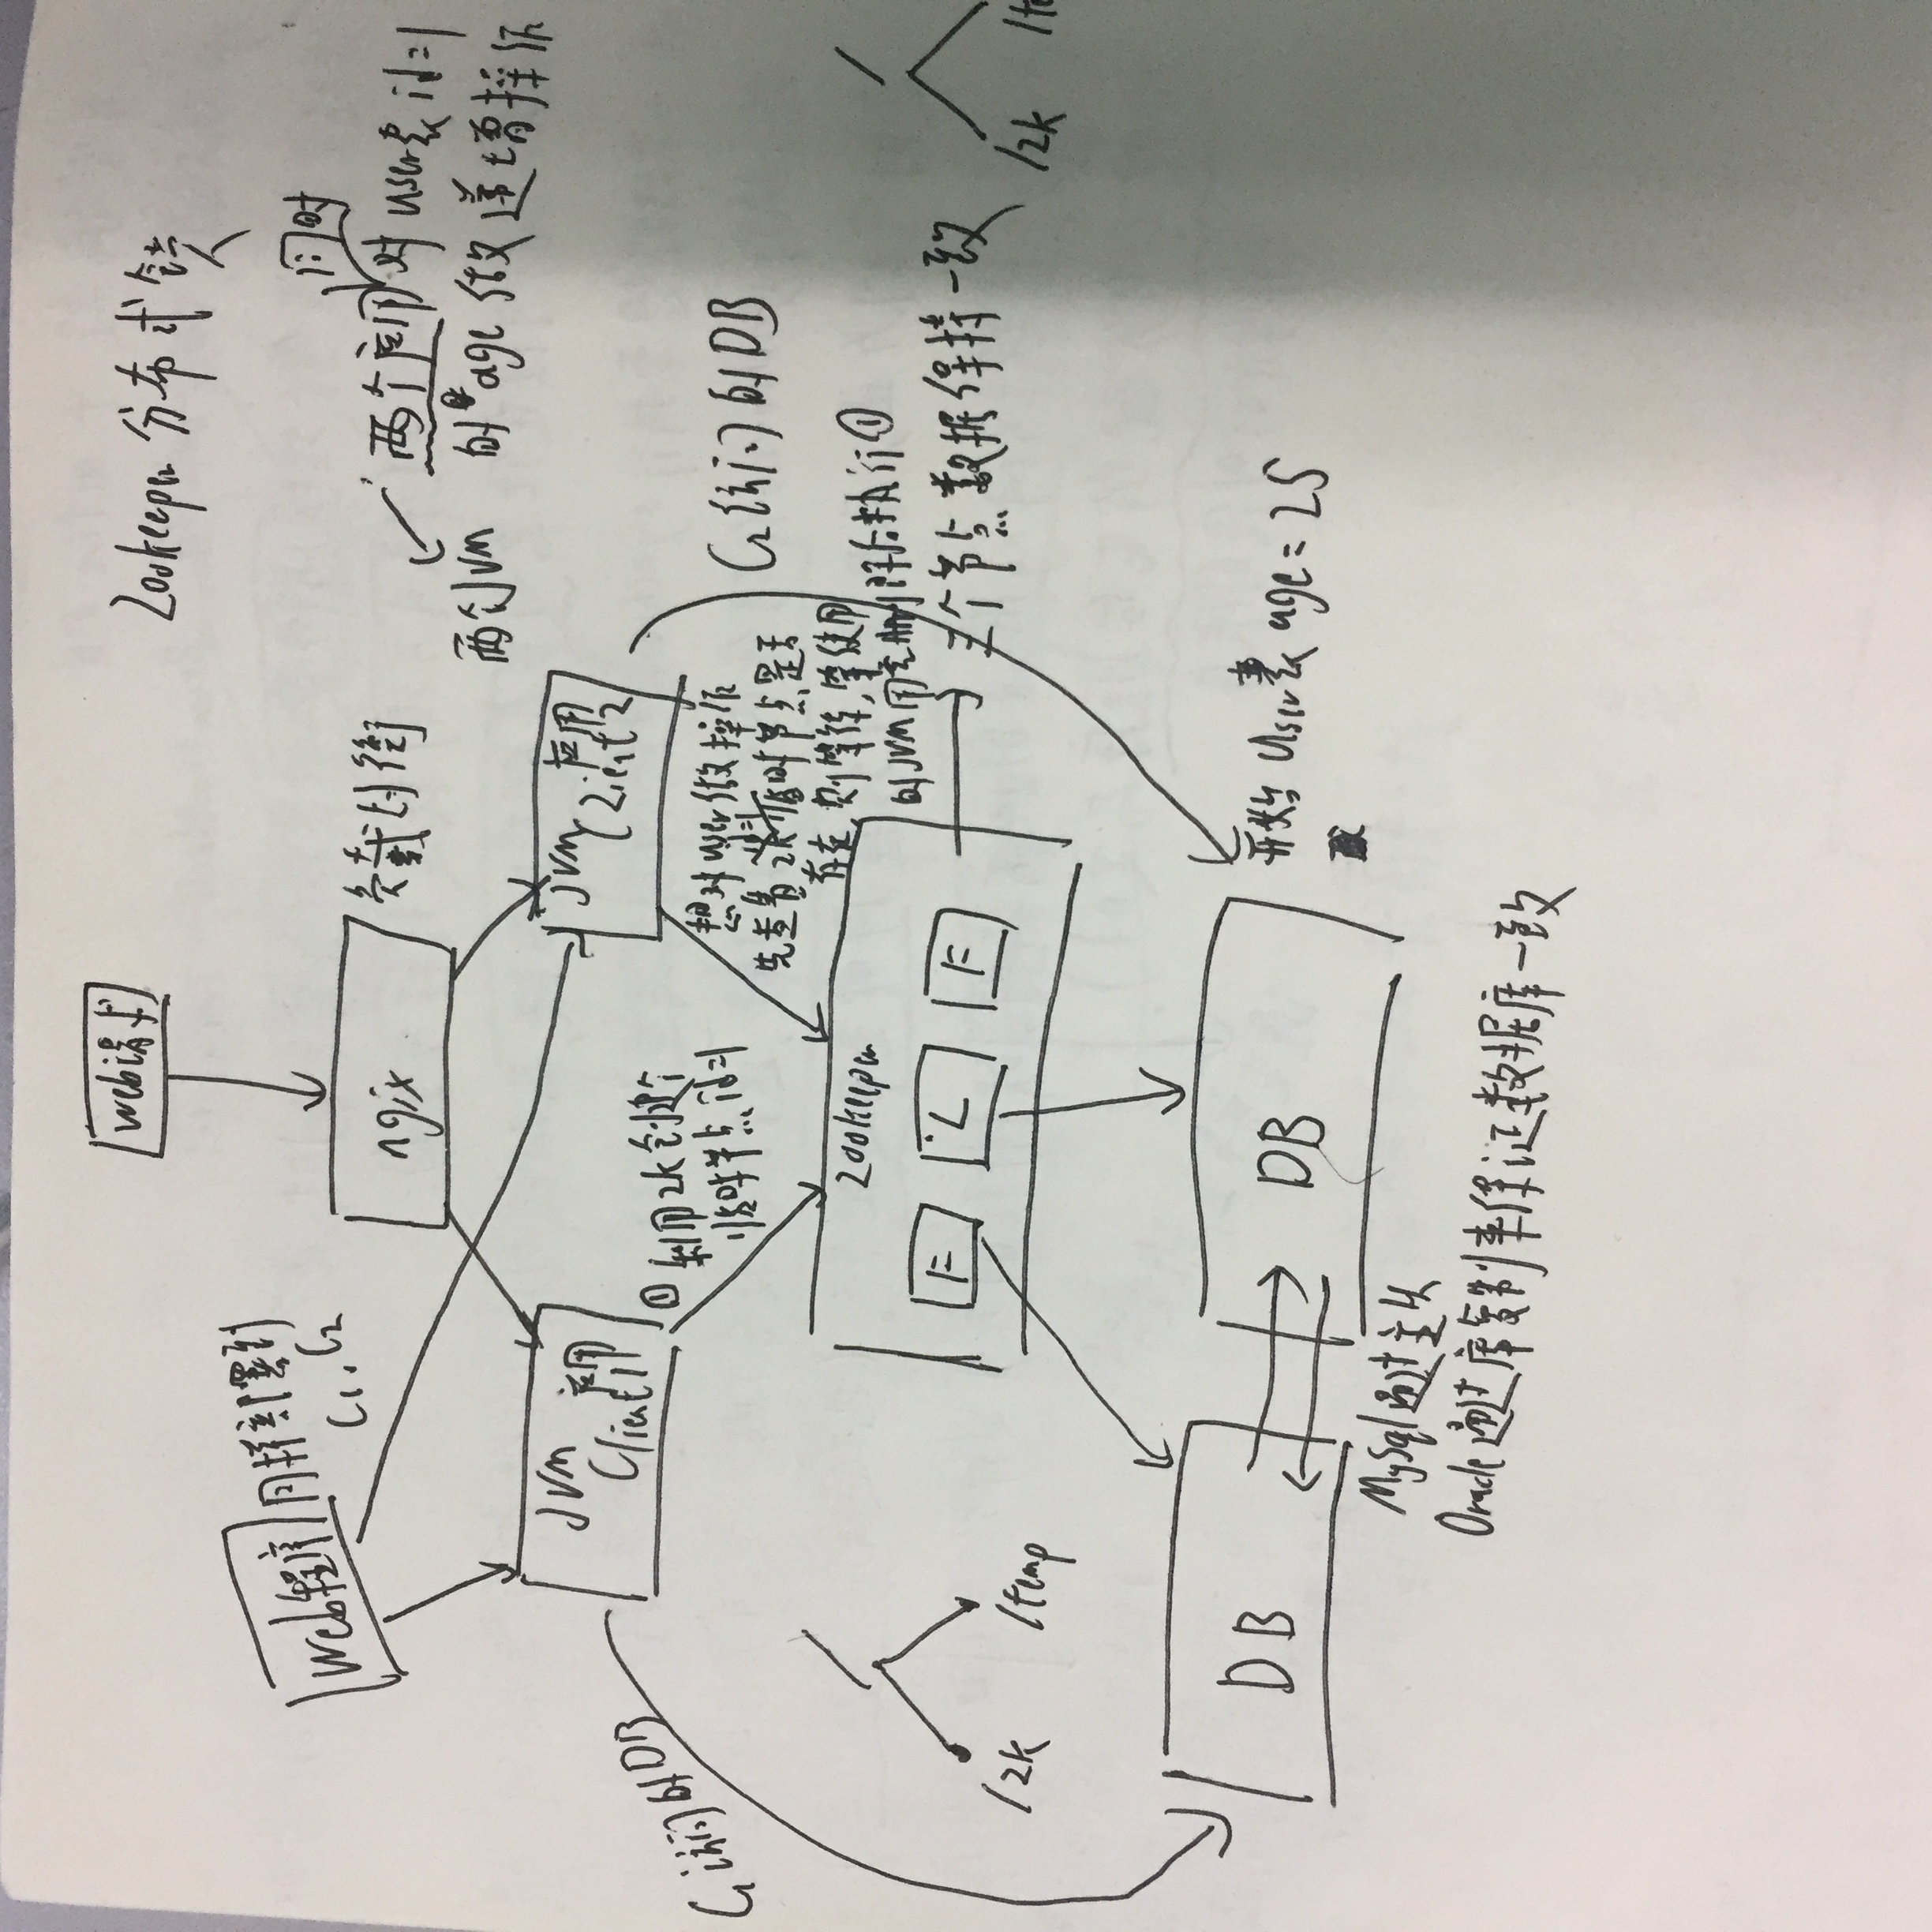 web请求
Zookeeper 分布式锁
web程序
同样部署到
C1、C2
ngix
负载均衡
同时
两个应用对user表id=1
的age做递增操作
两个JVM
JVM
应用
Client1
JVM
应用
Client2
C1访问的DB
① 利用zk创建个
临时节点id=1
想对user做操作
id=1
先查看zk临时节点是否
存在,则等待,等使用
的JVM用完删除后执行①
C2访问的DB
Zookeeper
F
L
F
三个节点数据保持一致
/
/zk
/temp
/
/zk
/te
DB
DB
开始 user表 age=25
MySql通过主从
Oracle通过库复制来保证数据库一致